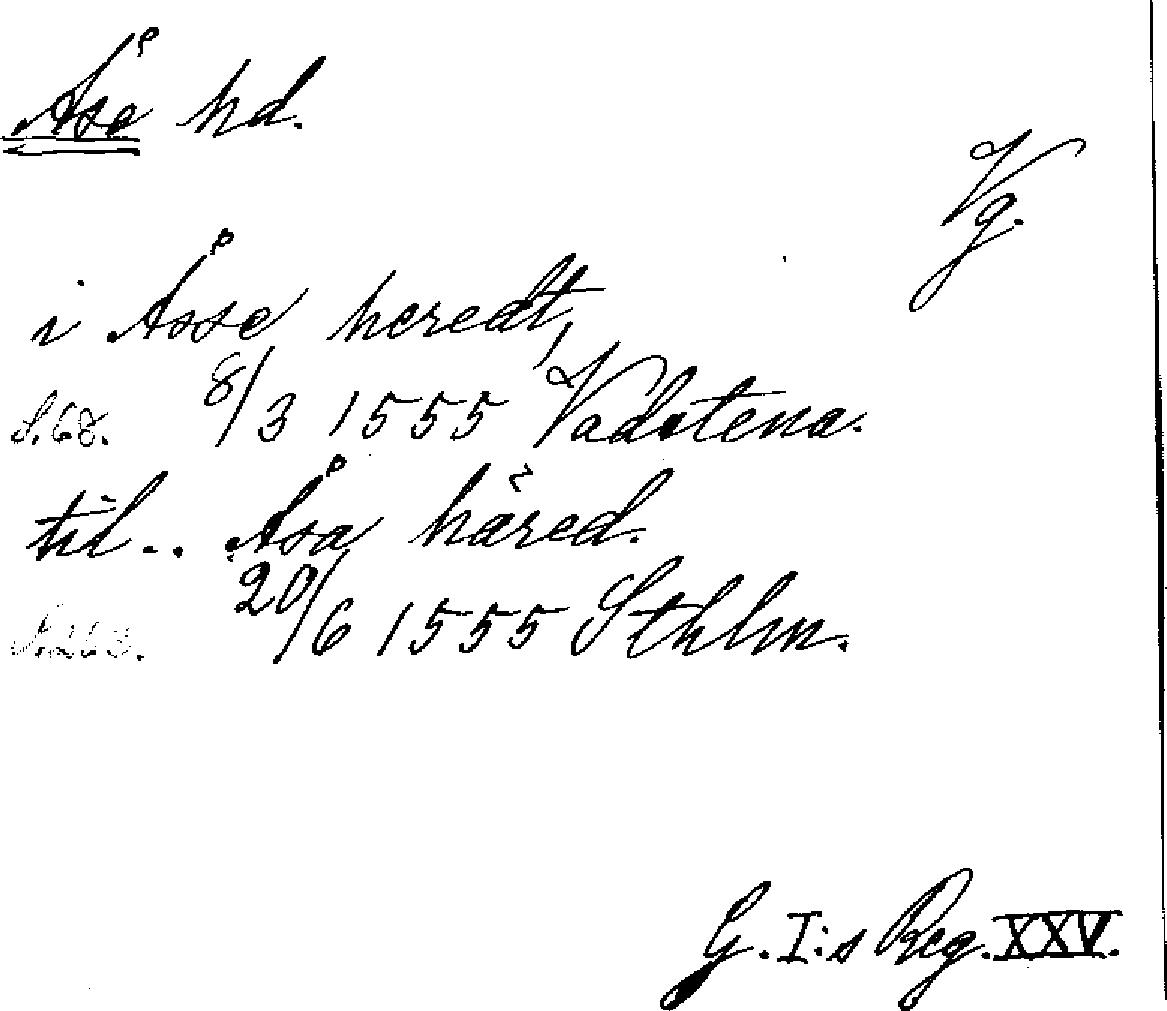 Åse hd.
Vg.
i Åsse heredt,
S. 68. 8/3 1555 Vadstena.
til.. Åsa häred.
S. 263. 20/6 1555 Sthlm.
G. I:s Reg. XXV.